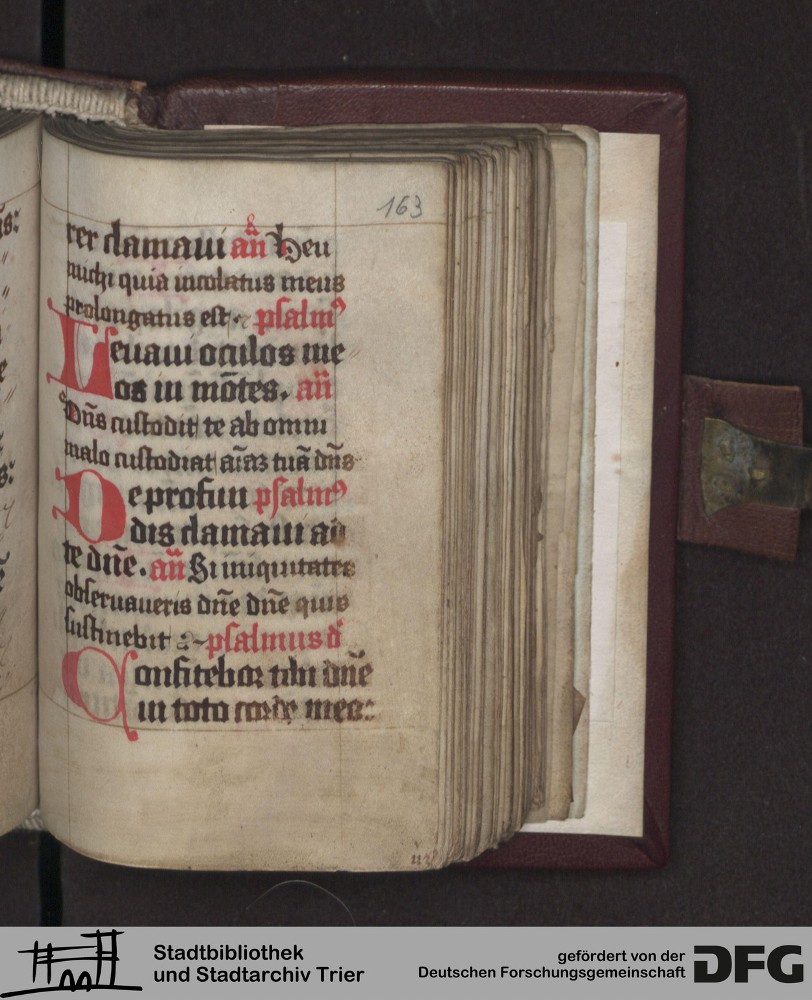 163
rer clamaui an̄ Heu
michi quia incolatus meus
prolongatus est. psalmꝰ
Leuaui oculos me
os in mōtes. an̄
Dn̄s custodit te ab omni
malo custodiat aīaꝫ tuā dn̄s
De profun psalmꝰ
dis clamaui ad
te dn̄e. an̄ Si iniquitates
obseruaueris dn̄e dn̄e quis
sustinebit psalmus d
Confitebor tibi dn̄e
in toto corde meo:
Stadtbibliothek
und Stadtarchiv Trier
gefördert von der
Deutschen Forschungsgemeinschaft
DFG